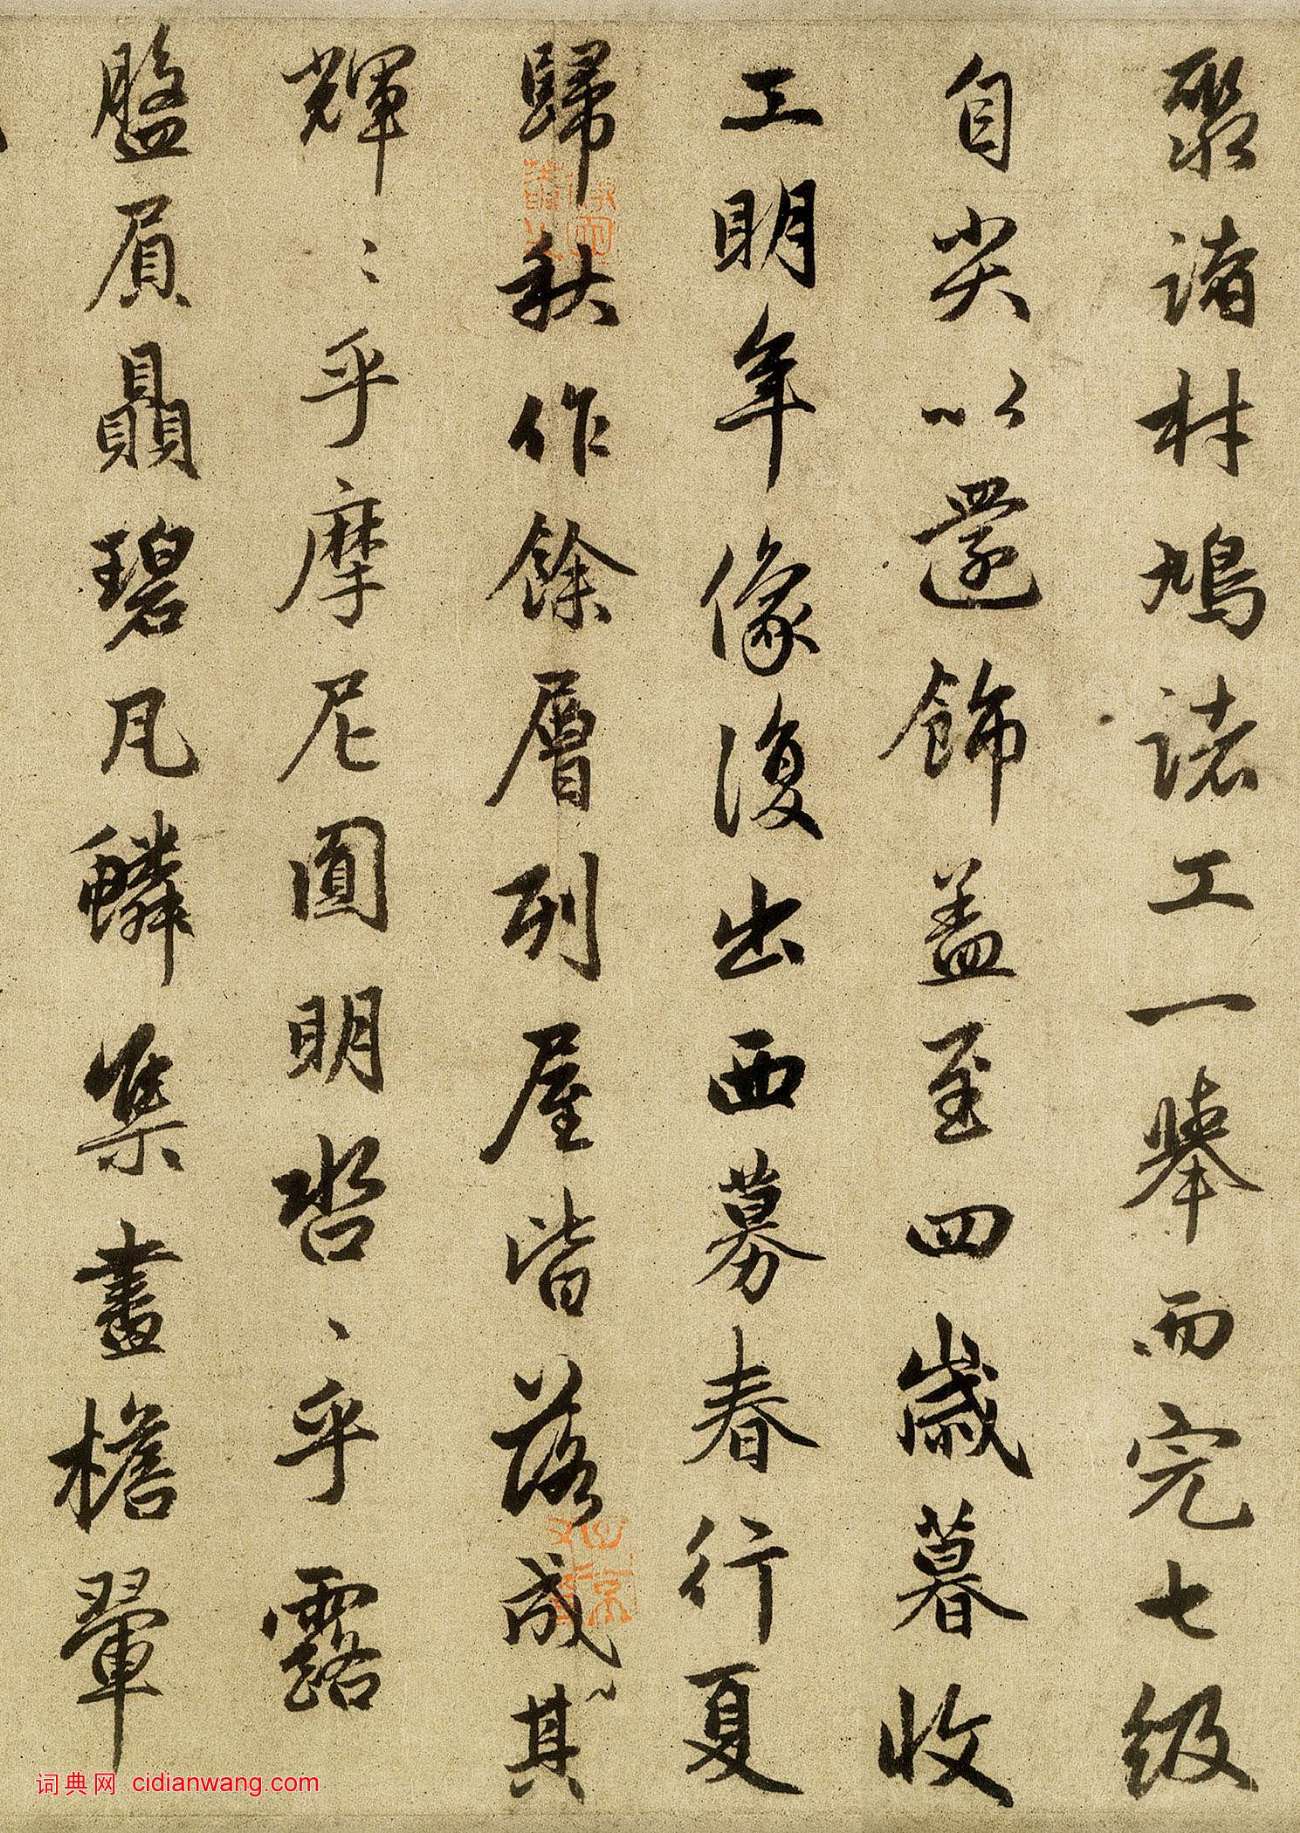 聚諸材鳩諸工一舉而完七級
自尖以還飾盖至四歲暮收
工明年像復出西募春行夏
歸秋作餘層列屋皆落成其
輝〻乎摩尼圓明呇〻乎露
盤屓贔碧凡鱗集畫檐翬
词典网 cidianwang.com